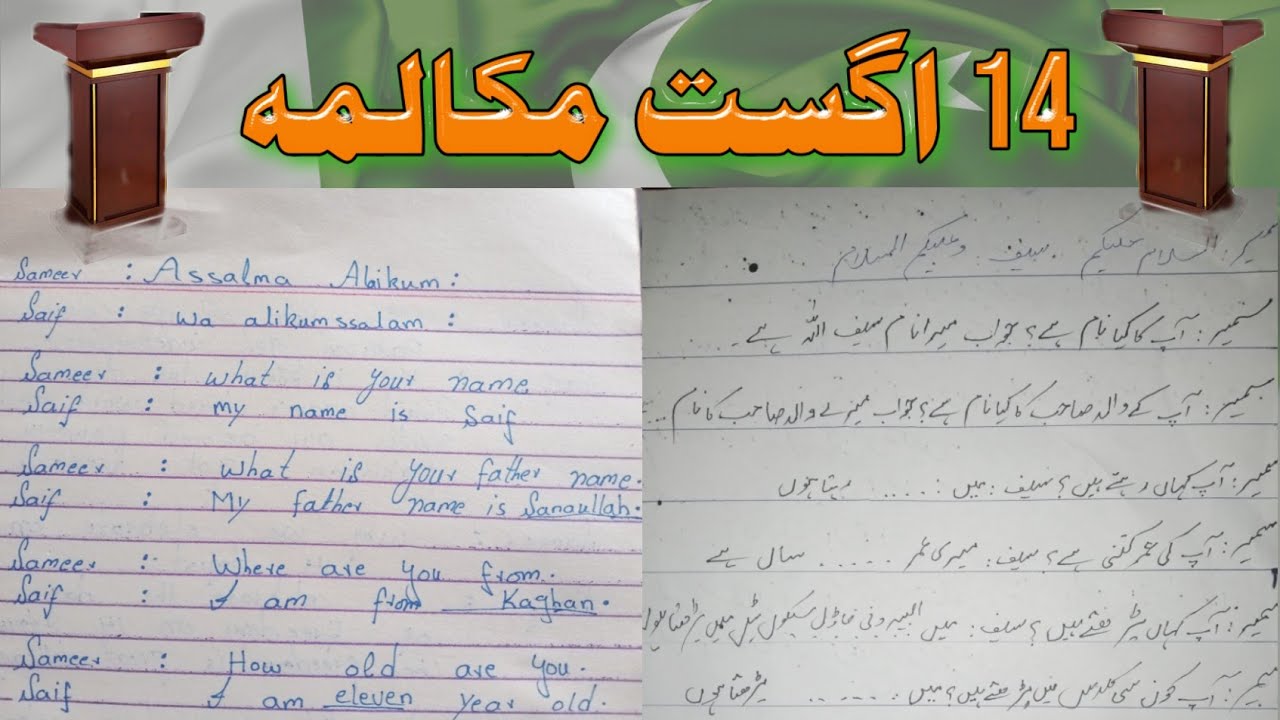 14 اگست مکالمہ
Sameer : Assalma Alaikum :
Saif : wa alikumssalam :
Sameer : what is your name
Saif : my name is Saif
Sameer : what is your father name.
Saif : My father name is Sanaullah.
Sameer : Where are you from.
Saif : I am from Kaghan.
Sameer : How old are you.
Saif : I am eleven year old.
سمیر : السلام علیکم . سیف : وعلیکم السلام
سمیر : آپ کا کیا نام ہے؟ جواب میرا نام سیف اللہ ہے۔
سمیر : آپ کے والد صاحب کا کیا نام ہے؟ جواب میرے والد صاحب کا نام ...
سمیر : آپ کہاں رہتے ہیں؟ سیف : میں : ..... رہتا ہوں
سمیر : آپ کی عمر کتنی ہے؟ سیف : میری عمر ...... سال ہے
سمیر : آپ کہاں پڑھتے ہیں؟ سیف : میں ماڈل سکول میں پڑھتا ہوں
سمیر : آپ کون سی کلاس میں پڑھتے ہیں؟ میں : ...... پڑھتا ہوں